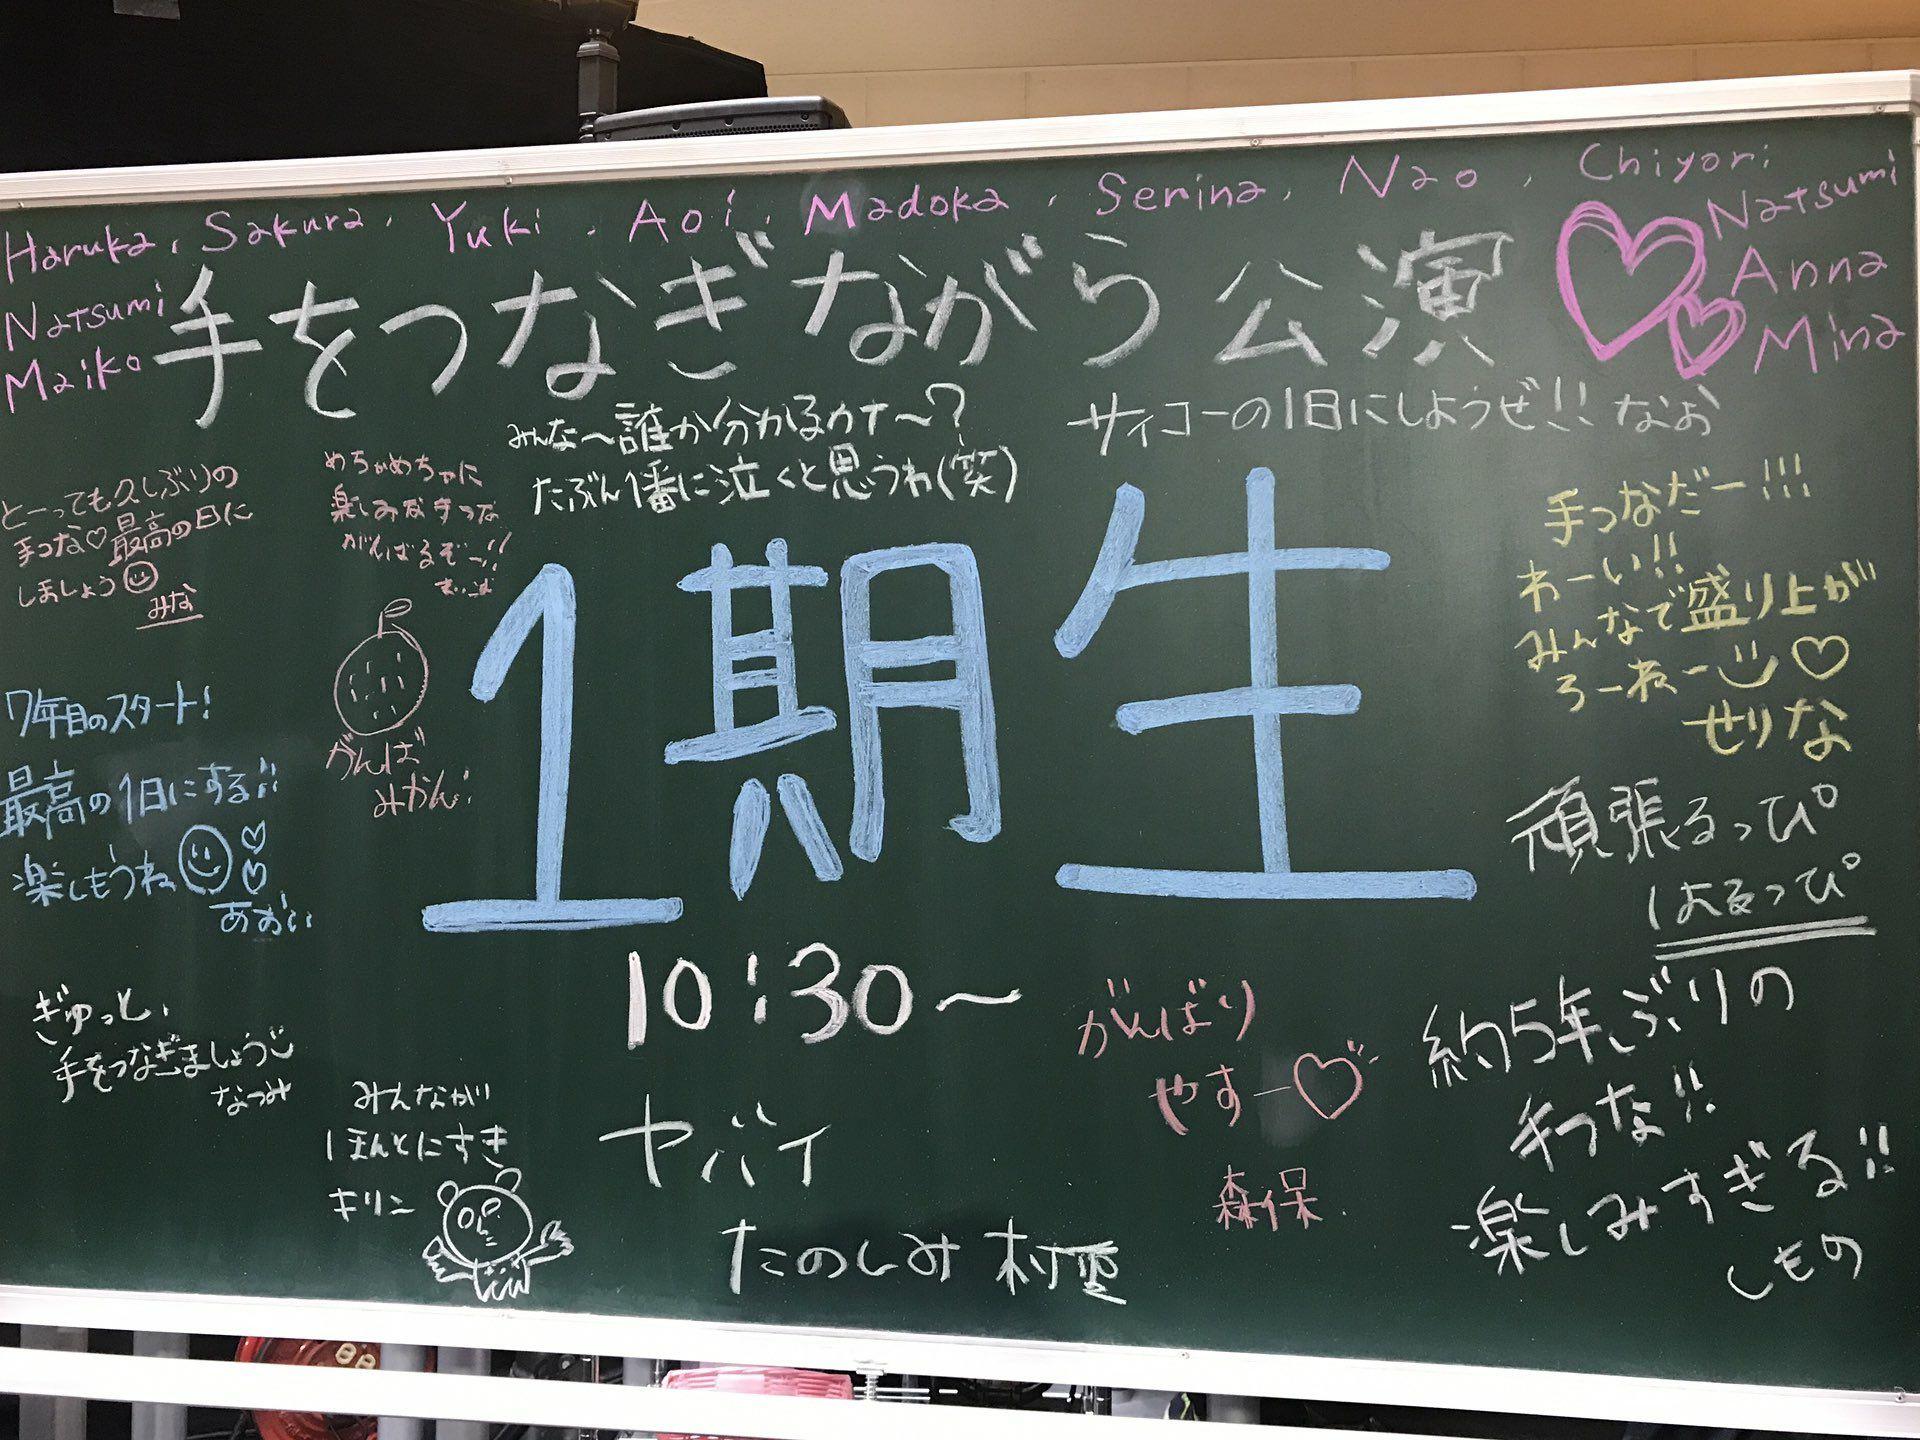 Haruka, Sakura, Yuki, Aoi, Madoka, Serina, Nao, Chiyori
Natsumi
Maiko
Natsumi
Anna
Mina
手をつなぎながら公演
みんな〜誰か分かるカナ〜?
たぶん1番に泣くと思うわ(笑)
サイコーの1日にしようぜ!! なお
とーっても久しぶりの
手つな♡最高の日に
しましょう
みな
めちゃめちゃに
楽しみだ手つな
がんばるぞー!!
1期生
手つなだー!!!
わーい!!
みんなで盛り上が
ろーねー♡
せりな
7年目のスタート!
最高の1日にする!!
楽しもうね
あおい
がんば
みかん!
頑張るっぴ
はるっぴ
10:30〜
ぎゅっと、
手をつなぎましょう
なつみ
みんなが
ほんとにすき
キリン
ヤバイ
たのしみ 村重
がんばり
やすー♡
森保
約5年ぶりの
手つな!!
楽しみすぎる!!
しもの